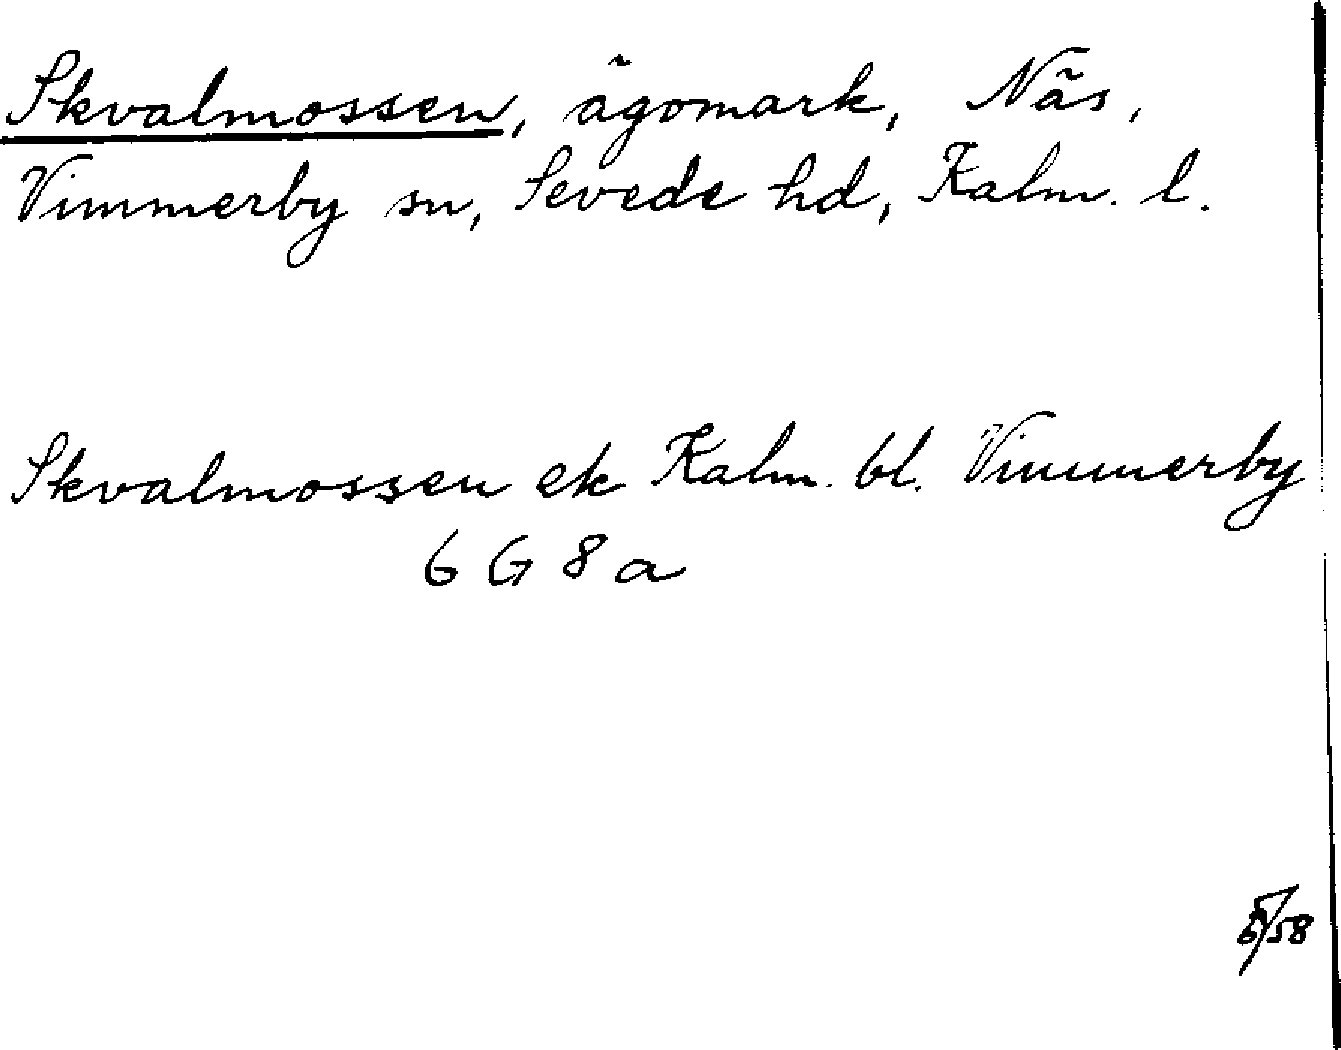 Skvalmossen, ägomark, Näs,
Vimmerby sn, Sevede hd, Kalm. l.
Skvalmossen ek Kalm. bl. Vimmerby
6 G 8 a